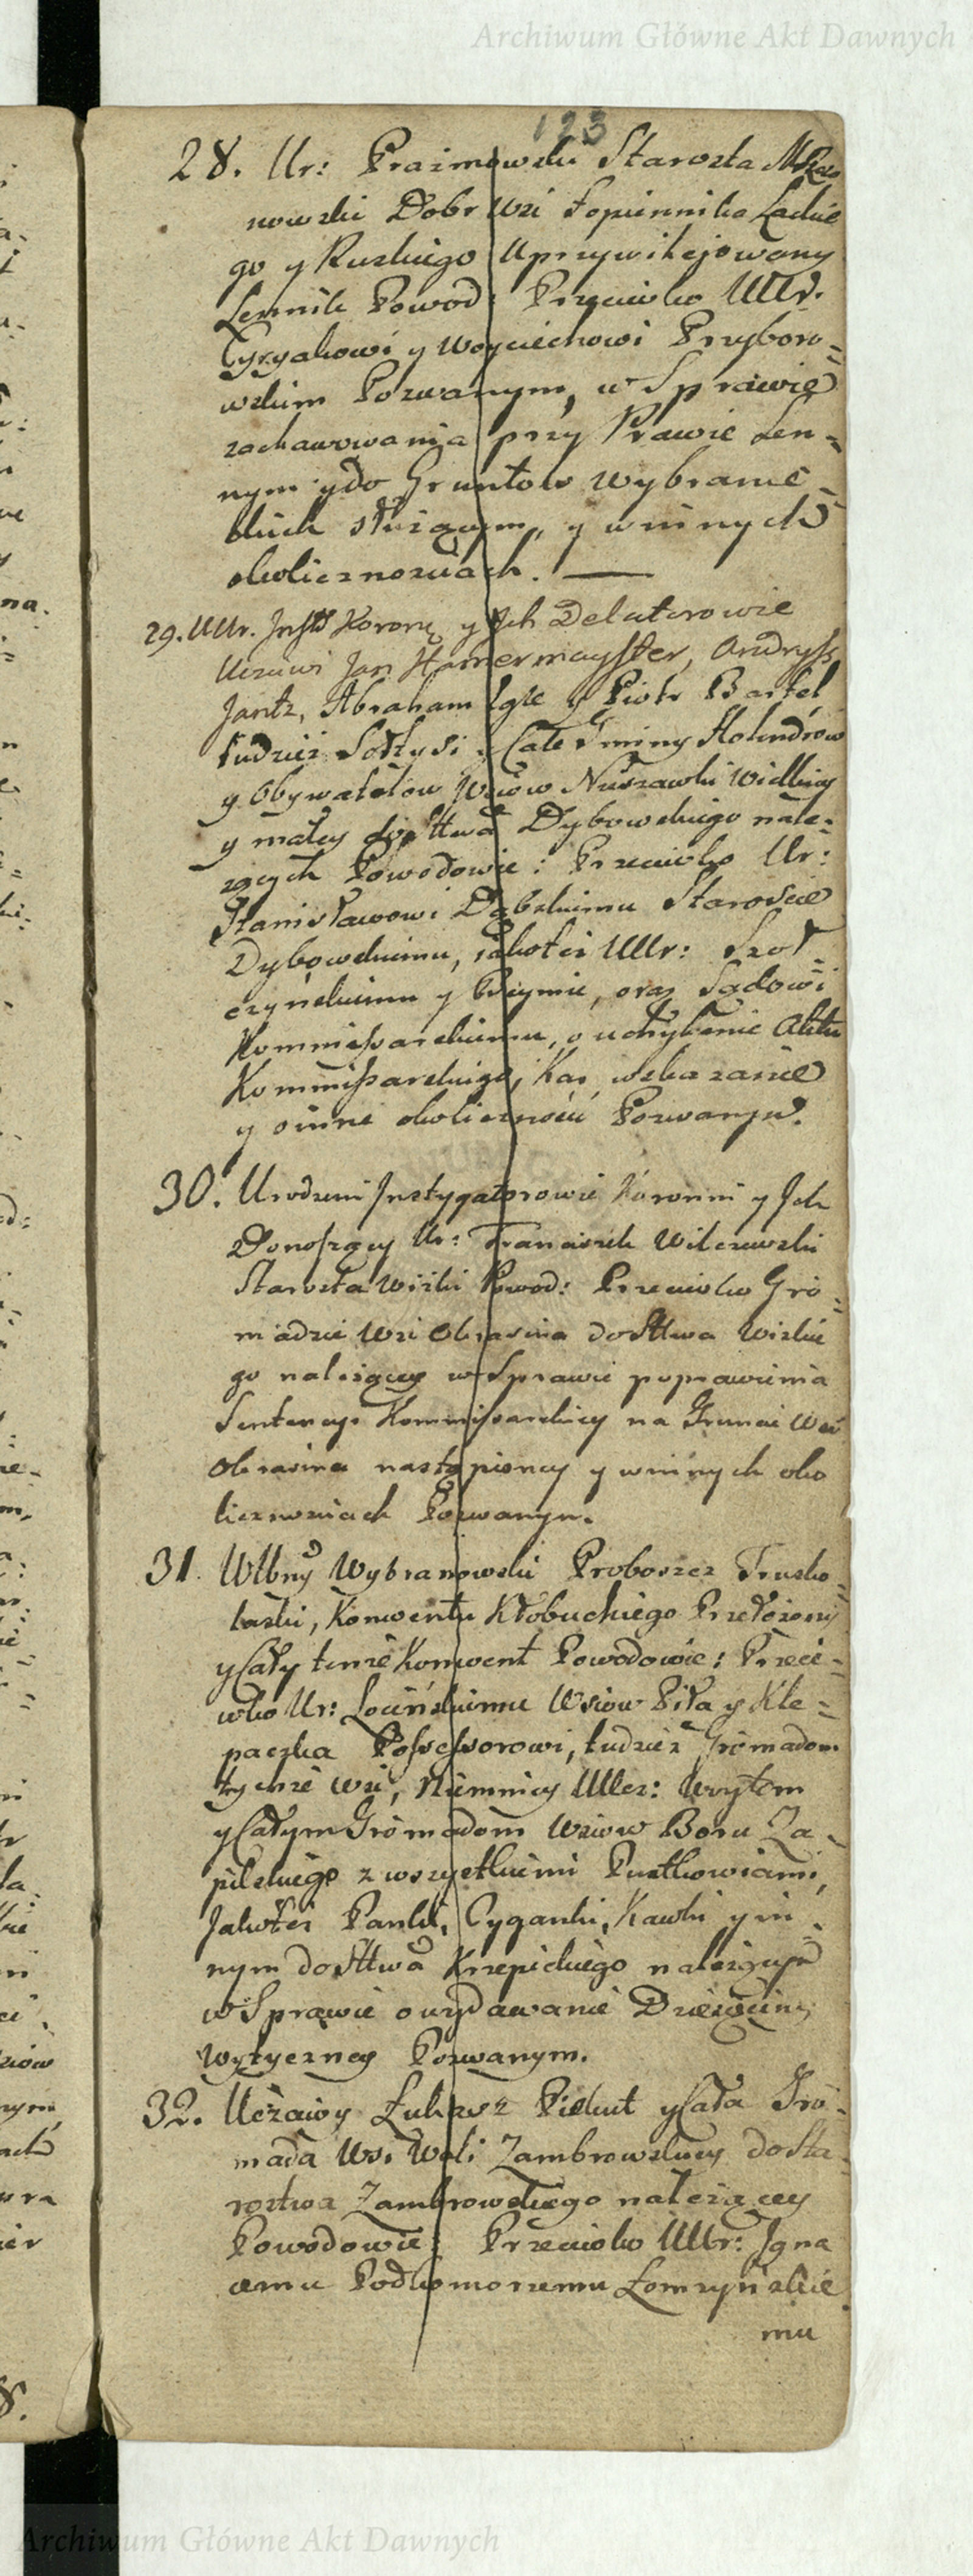 Archiwum Główne Akt Dawnych
123
28. Ur: Prazmowski Starosta
nowski Dobr Wsi Łopiennika Lackie
go y Ruskiego Uprzywilejowany
Lennik Powod: Przeciwko UUr.
Cyryakowi y Woyciechowi Przyboro=
wskim Pozwanym, w Sprawie
zachawowania przy Prawie Len=
nym y do Gruntow Wybranie=
ckich służącym, y w innych
okolicznosciach.
29. UUr. Insty Koronę y Ich Delatorowie
Uczciwi Jan Hamermayster, Andrys
Jantz, Abraham y Piotr Bartel
tudzież Sołtysi y Całe Gminy Holendrow
y Obywatelow Wsiow Nieszawki Wielkiey
y małey do Sttwa Dybowskiego nale=
zących Powodowie: Przeciwko Ur:
Stanisławowi Dąbskiemu Staroscie
Dybowskiemu, jakoteż UUr:
czynskiemu y Preymie, oraz Sądowi
Kommissarskiemu, o uchylenie Aktu
Kommissarskiego, Kar wskazanie
y o inne okoliczności Pozwanym.
30. Urodzeni Instygatorowie Koronni y Ich
Donoszący Ur: Franciszek Wilczewski
Starosta Wizki Powod: Przeciwko Gro=
madzie Wsi Obrasina do Sttwa Wizkie
go należącey w Sprawie poprawienia
Sentencyi Kommissarskiey na Gruncie Wsi
Obrasina nastąpioney y w innych oko
licznosciach Pozwanym.
31. WUbny Wybranowski Proboszcz Trusko=
laski, Konwentu Kłobuckiego Przełożony
y Cały tenże Konwent Powodowie: Przeci=
wko Ur: Locińskiemu Wsiow Piła y Kle=
paczka Possessorowi, tudzież Gromadom
tychże Wsi, Niemniey UUcz: Woytom
y Całym Gromadom Wsiow Boru Za=
pilskiego z wszystkiemi Pustkowiami,
Jakoteż Panki, Cyganki, Kawki y in=
nym do Sttwa Krzepickiego należącym
w Sprawie o wydawanie Dziesięciny
Wytyczney Pozwanym.
32. Uczciwy Łukasz Piekut y Cała Gro=
mada Wsi Woli Zambrowskiey do Sta=
rostwa Zambrowskiego należącey
Powodowie: Przeciwko UUr: Igna
cemu Podkomorzemu Łomzyńskie
mu
Archiwum Główne Akt Dawnych